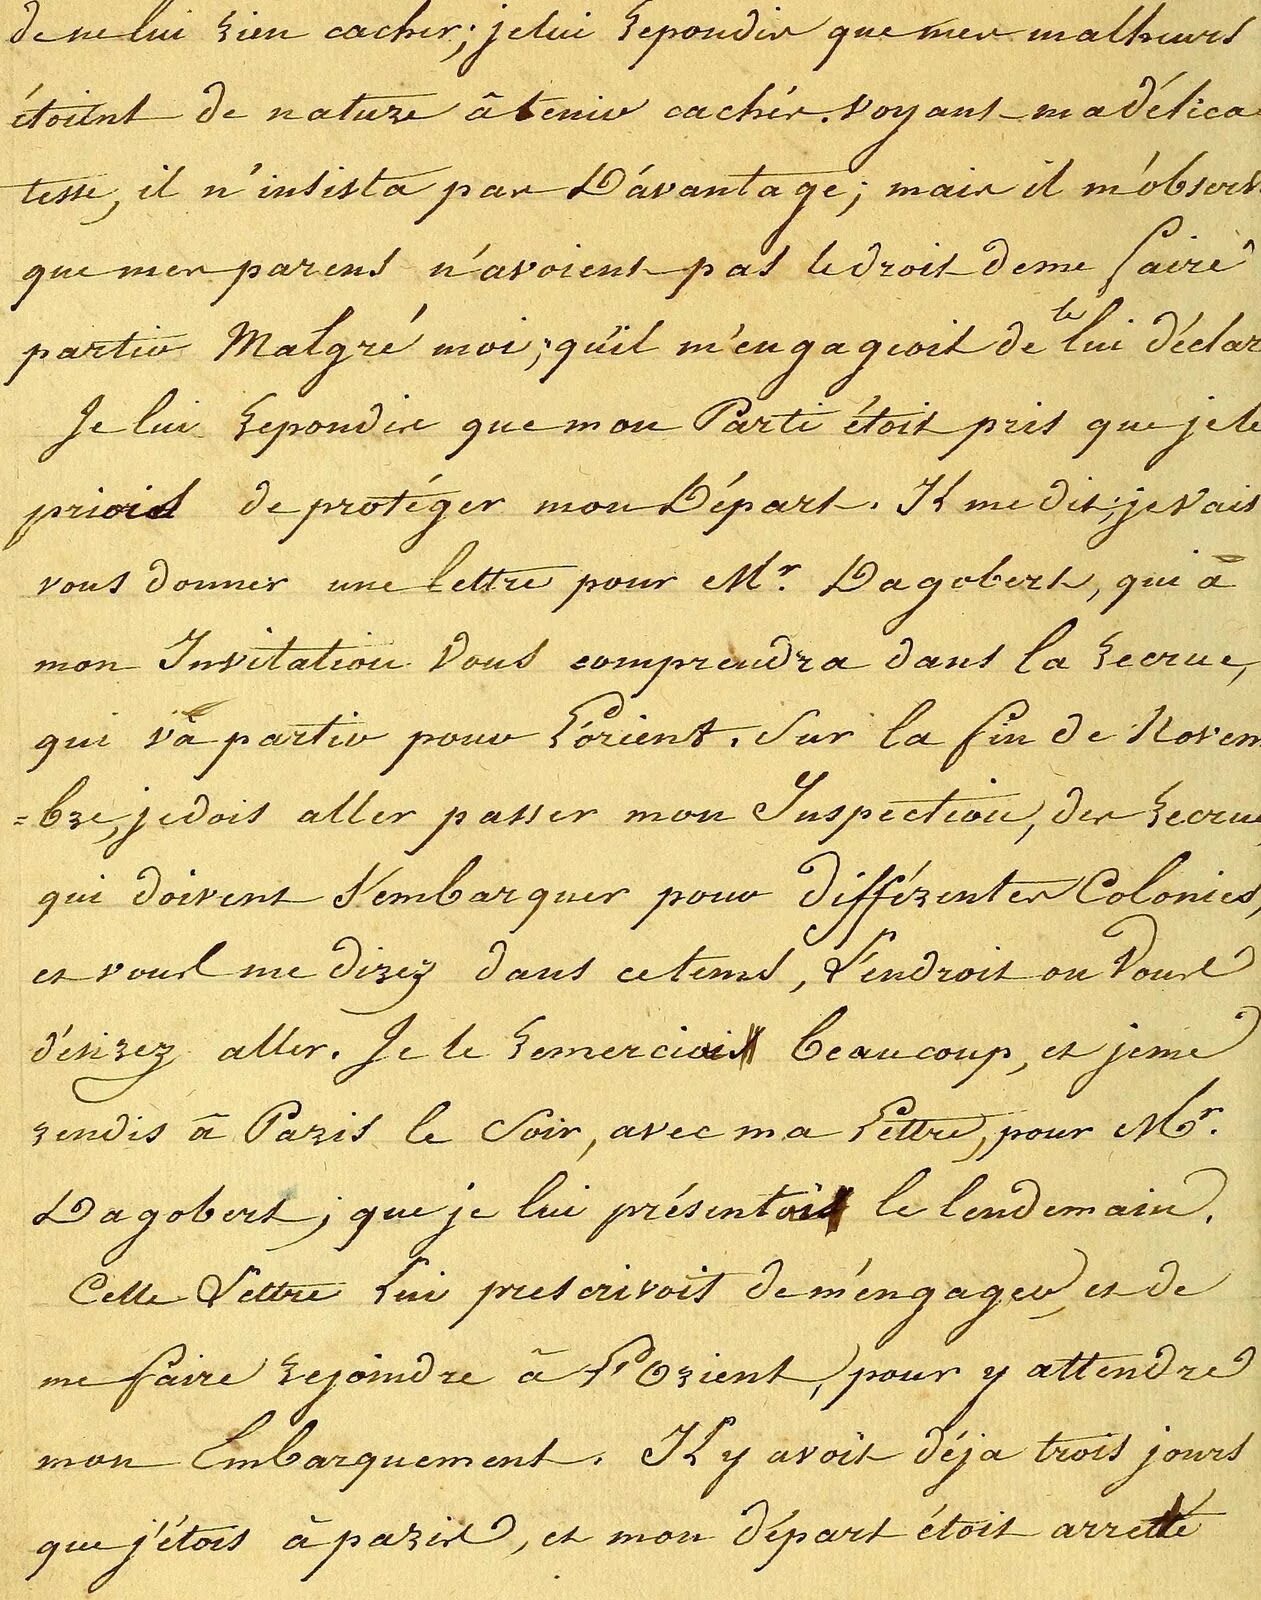 de ne lui rien cacher; je lui repondis que mes malheurs
étoient de nature à tenir cachés. voyant ma délica
tesse, il n'insista pas D'avantage; mais il m'observ
que mes parens n'avoient pas le droit de me faire
partir Malgré moi; qu'il m'engageoit de le lui déclar
Je lui repondis que mon Parti étoit pris que je le
priois de protéger mon Départ. Il me dit; je vais
vous donner une lettre pour Mr. Dagobert, qui à
mon Invitation Vous comprendra dans la recrue,
qui va partir pour L'orient. Sur la fin de Novem
=bre, je dois aller passer mon Inspection, des recrue
qui doivent s'embarquer pour différentes Colonies,
et vous me direz dans ce tems, L'endroit ou Vous
désirez aller. Je le remerciai beaucoup, et je me
rendis à Paris le Soir, avec ma Lettre, pour Mr.
Dagobert; que je lui présentai le lendemain.
Cette Lettre Lui prescrivoit de m'engager, et de
me faire rejoindre à L'Orient, pour y attendre
mon Embarquement. Il y avoit déja trois jours
que j'étois à paris, et mon départ étoit arretté